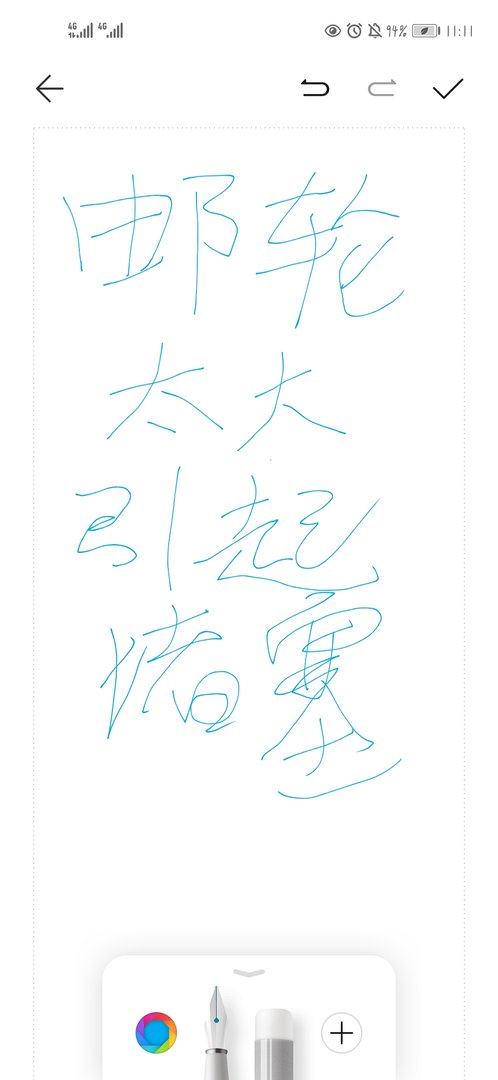 4G 4G 94% 11:11
邮轮
太大
引起
堵塞